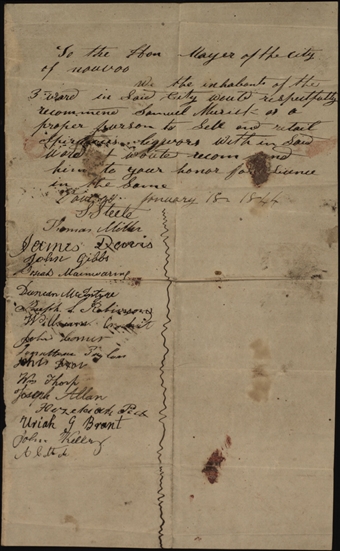 To the Hon Mayer of the City
of nauvoo
We the inhabents of the
3 ward in Said City would respectfully
recommend Samuel Musick as a
proper person to Sele and retail
Spirituous liquors with in Said
Ward & would recommend
him to your honor for licence
in the Same
January 18th 1844
J Steele
Thomas Miller
James Davis
John Gibbs
Mainwaring
Duncan McIntyre
Joseph L Robinson
John Lomer
Jonathan Taylor
Wm Tharp
Joseph Allan
Hezekiah Peck
Uriah G Brant
John Killey